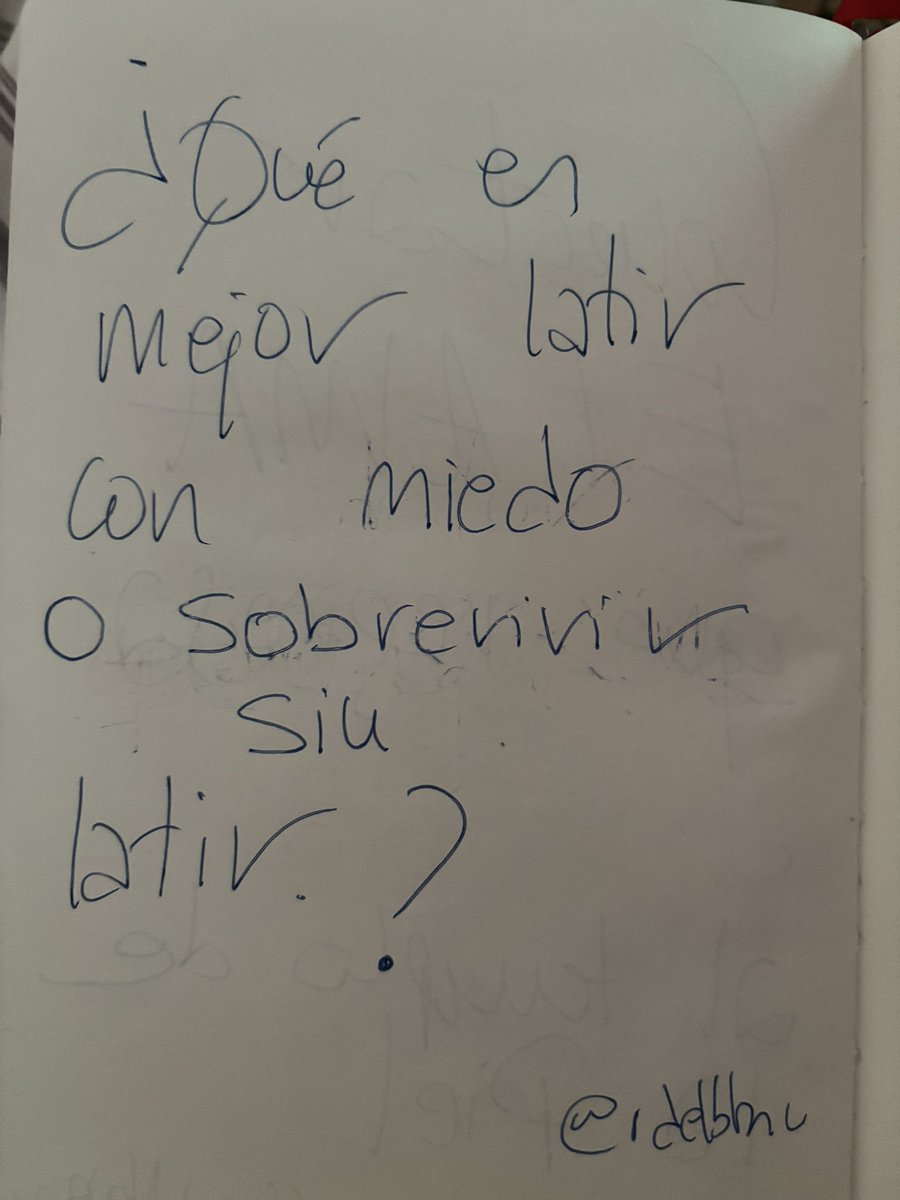 ¿Qué es
mejor latir
con miedo
o sobrevivir
sin
latir.?